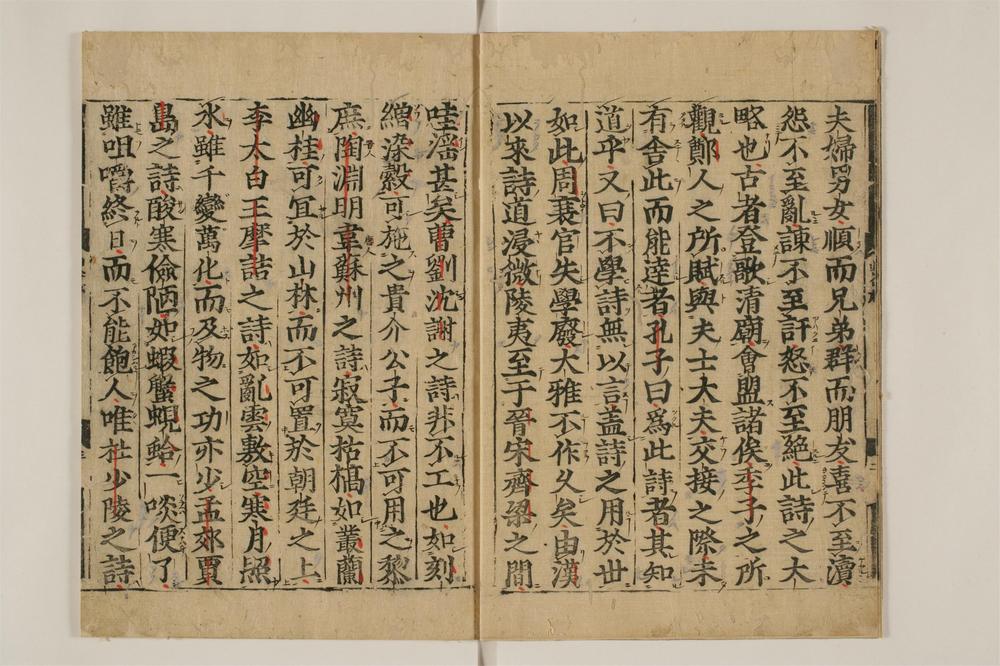 夫婦男女順而兄弟群而朋友喜不至瀆
怨不至亂諫不至訐怒不至絶此詩之大
略也古者登歌清廟會盟諸侯季子之所
觀鄭人之所賦與夫士大夫交接之際未
有舍此而能逹者孔子曰爲此詩者其知
道乎又曰不學詩無以言盖詩之用於世
如此周衰官失學廢大雅不作久矣由漢
以來詩道浸微陵夷至于晉宋齊梁之間
哇淫甚矣曹劉沈謝之詩非不工也如刻
繒染縠可施之貴介公子而不可用之黎
庶陶淵明韋蘇州之詩寂寞枯槁如叢蘭
幽桂可冝於山林而不可置於朝廷之上
李太白王摩詰之詩如亂雲敷空寒月照
水雖千變萬化而及物之功亦少孟郊賈
島之詩酸寒儉陋如蝦蟹蜆蛤一啖便了
雖咀嚼終日而不能飽人唯杜少陵之詩